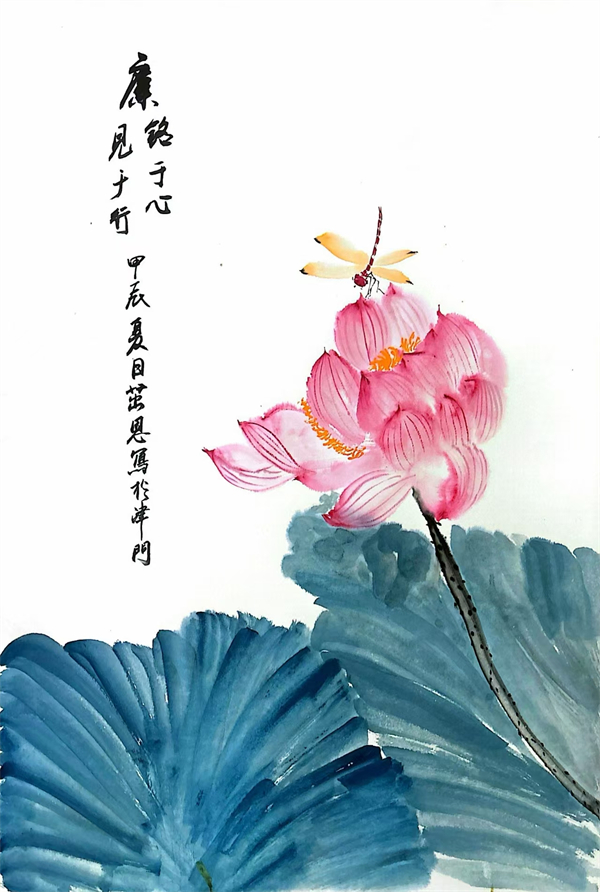 廉铭于心
见于行
甲辰夏日茁恩写於津門